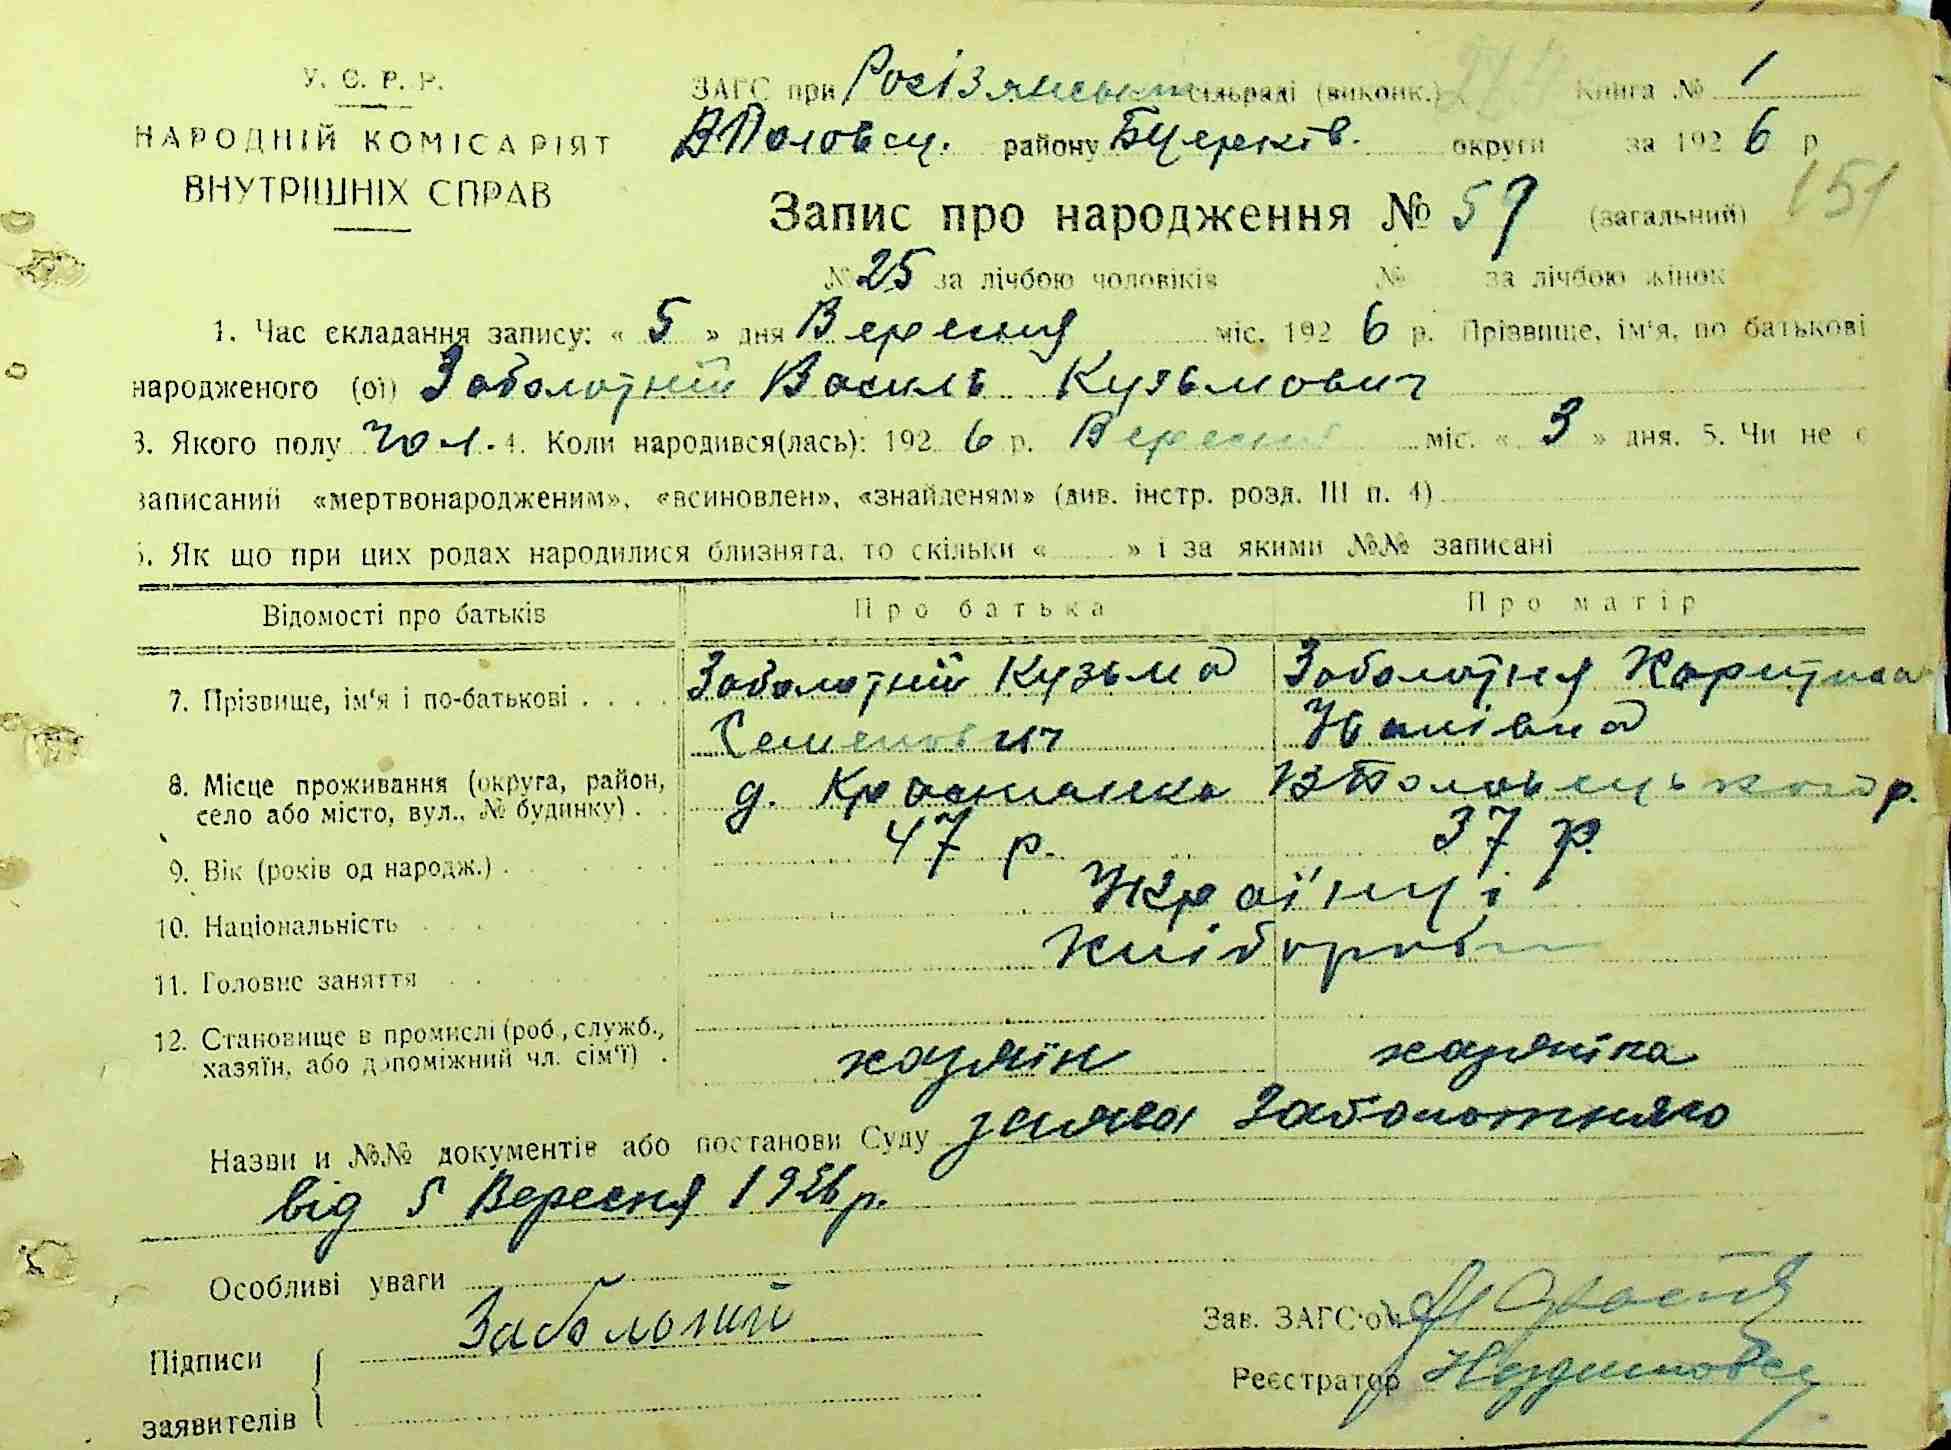 У. С. Р. Р.
НАРОДНІЙ КОМІСАРІЯТ
ВНУТРІШНІХ СПРАВ
ЗАГС при сільраді (виконк.) Книга № 1
ВПоловец. району БЦерків. округи за 1926 р
151
Запис про народження № 59 (загальний)
№ 25 за лічбою чоловіків № за лічбою жінок
1. Час складання запису: « 5 » дня Вересня міс. 1926 р. Прізвище, ім'я, по батькові
народженого (ої) Заболотній Василь Кузьмович
3. Якого полу чол. 4. Коли народився(лась): 1926 р. Вересня міс. « 3 » дня. 5. Чи не є
записаний «мертвонародженим», «всиновлен», «знайденям» (див. інстр. розд. III п. 4)
6. Як що при цих родах народилися близнята, то скільки « » і за якими №№ записані
Відомості про батьків Про батька Про матір
7. Прізвище, ім'я і по-батькові Заболотній Кузьма Семенович Заболотня Харитина Іванівна
8. Місце проживання (округа, район, село або місто, вул., № будинку) д. ВПоловецького р.
9. Вік (років од народж.) 47 р. 37 р.
10. Національність Українці
11. Головне заняття Хлібороби
12. Становище в промислі (роб., служб., хазяїн, або допоміжний чл. сім'ї) хазяїн хазяйка
Назви и №№ документів або постанови Суду заява Заболотняго
від 5 Вересня 1926 р.
Особливі уваги
Підписи Заболотний
заявителів
Зав. ЗАГС'ом
Реєстратор